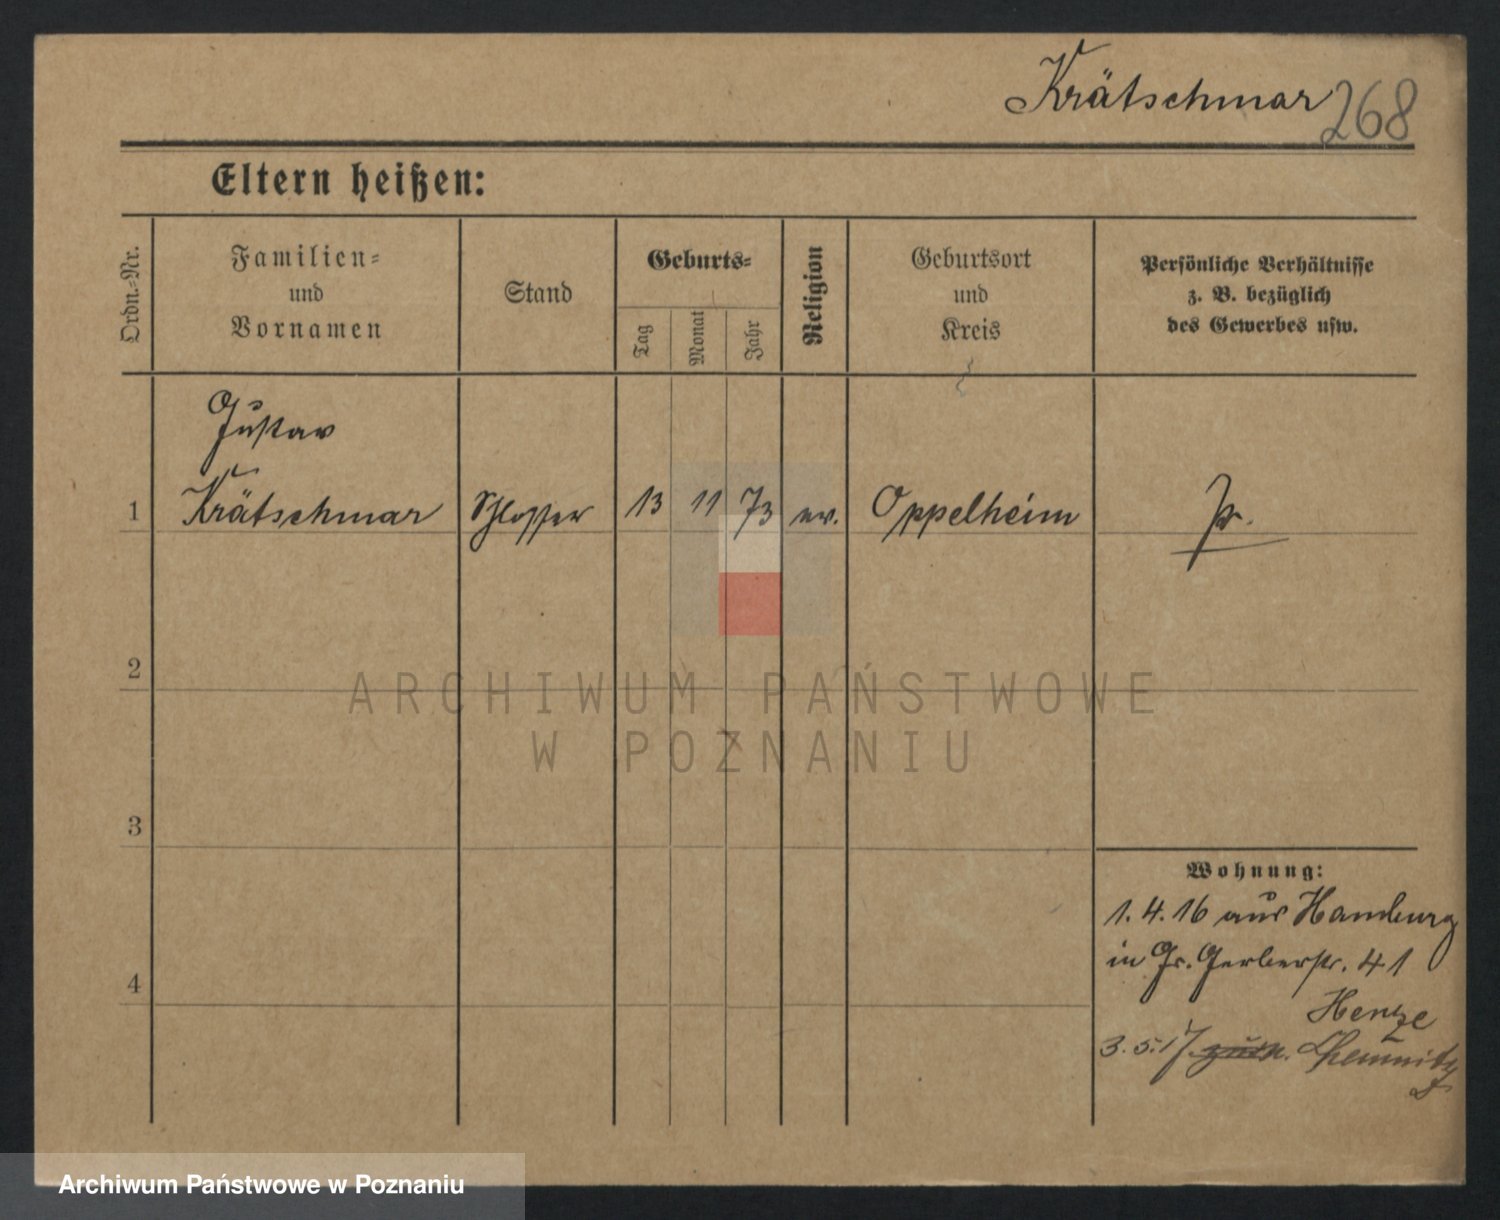 Krätschmar 268
Eltern heißen:
Ordn.-Nr.
Familien-
und
Vornamen
Stand
Geburts-
Tag
Monat
Jahr
Religion
Geburtsort
und
Kreis
Persönliche Verhältnisse
z. B. bezüglich
des Gewerbes usw.
Gustav
1 Krätschmar Schlosser 13 11 73 ev. Oppelheim Pr.
2
ARCHIWUM PAŃSTWOWE
W POZNANIU
3
Wohnung:
1. 4. 16 aus Hamburg
in Gr. Gerberstr. 41
4
Henze
3. 5. 17. Chemnitz
Archiwum Państwowe w Poznaniu